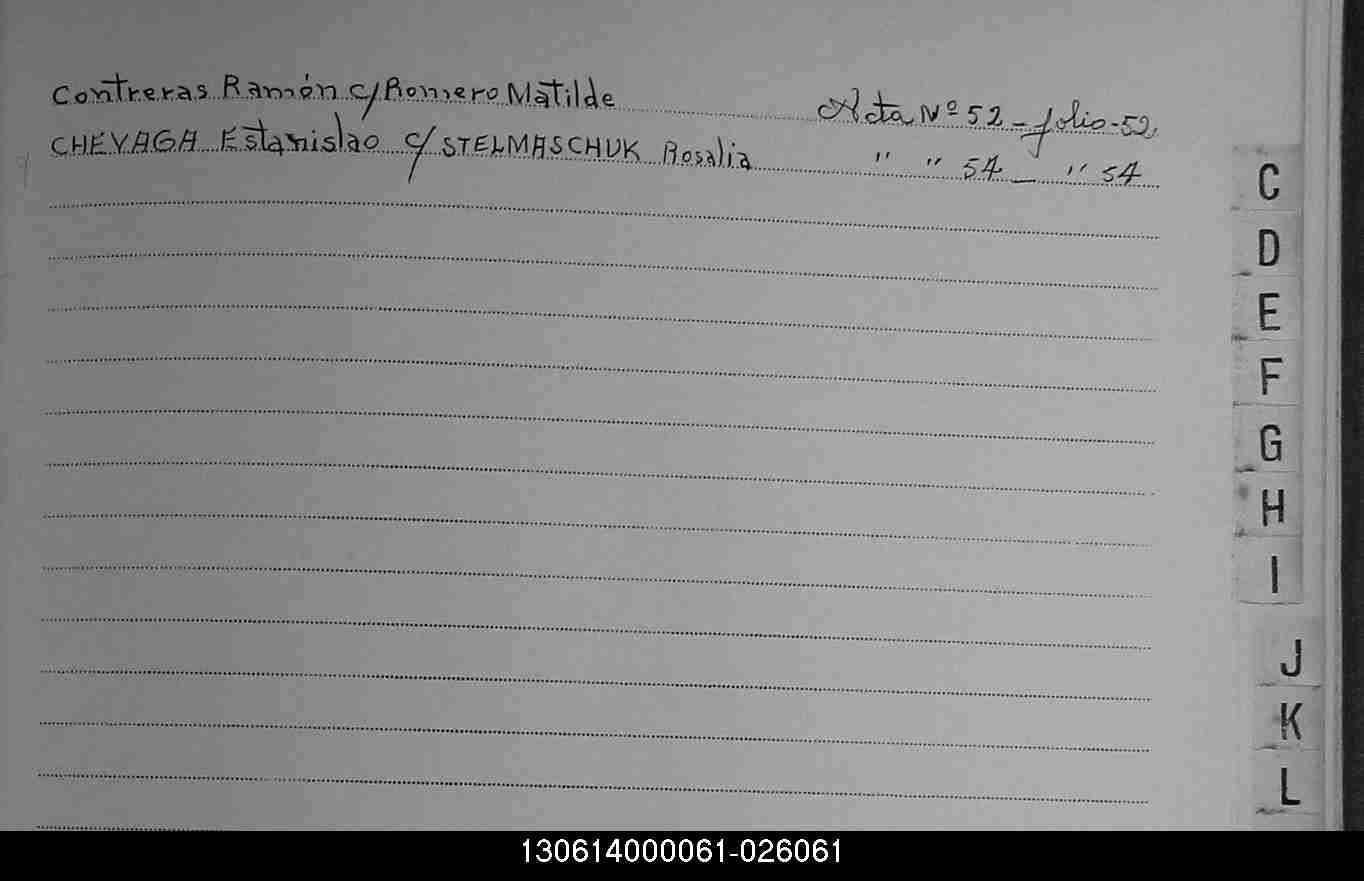 Contreras Ramón c/ Romero Matilde Acta Nº 52 - folio - 52
CHEVAGA Estanislao c/ STELMASCHUK Rosalia " " 54 - " 54
C
D
E
F
G
H
I
J
K
L
130614000061-026061